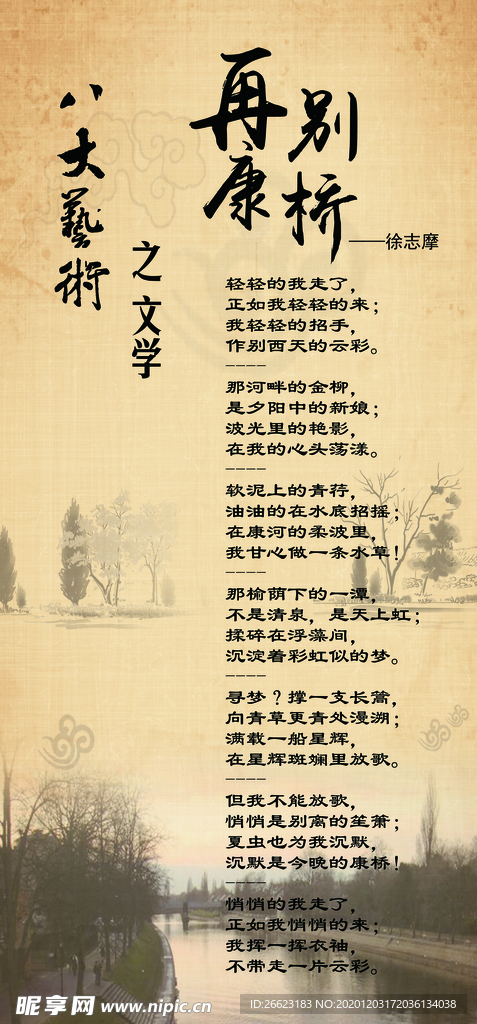 八大藝術
之文学
再别康桥
——徐志摩
轻轻的我走了，
正如我轻轻的来；
我轻轻的招手，
作别西天的云彩。
----
那河畔的金柳，
是夕阳中的新娘；
波光里的艳影，
在我的心头荡漾。
----
软泥上的青荇，
油油的在水底招摇；
在康河的柔波里，
我甘心做一条水草！
----
那榆荫下的一潭，
不是清泉，是天上虹；
揉碎在浮藻间，
沉淀着彩虹似的梦。
----
寻梦？撑一支长篙，
向青草更青处漫溯；
满载一船星辉，
在星辉斑斓里放歌。
----
但我不能放歌，
悄悄是别离的笙萧；
夏虫也为我沉默，
沉默是今晚的康桥！
----
悄悄的我走了，
正如我悄悄的来；
我挥一挥衣袖，
不带走一片云彩。
昵享网 www.nipic.cn
ID:26623183 NO:20201203172036134038
昵享